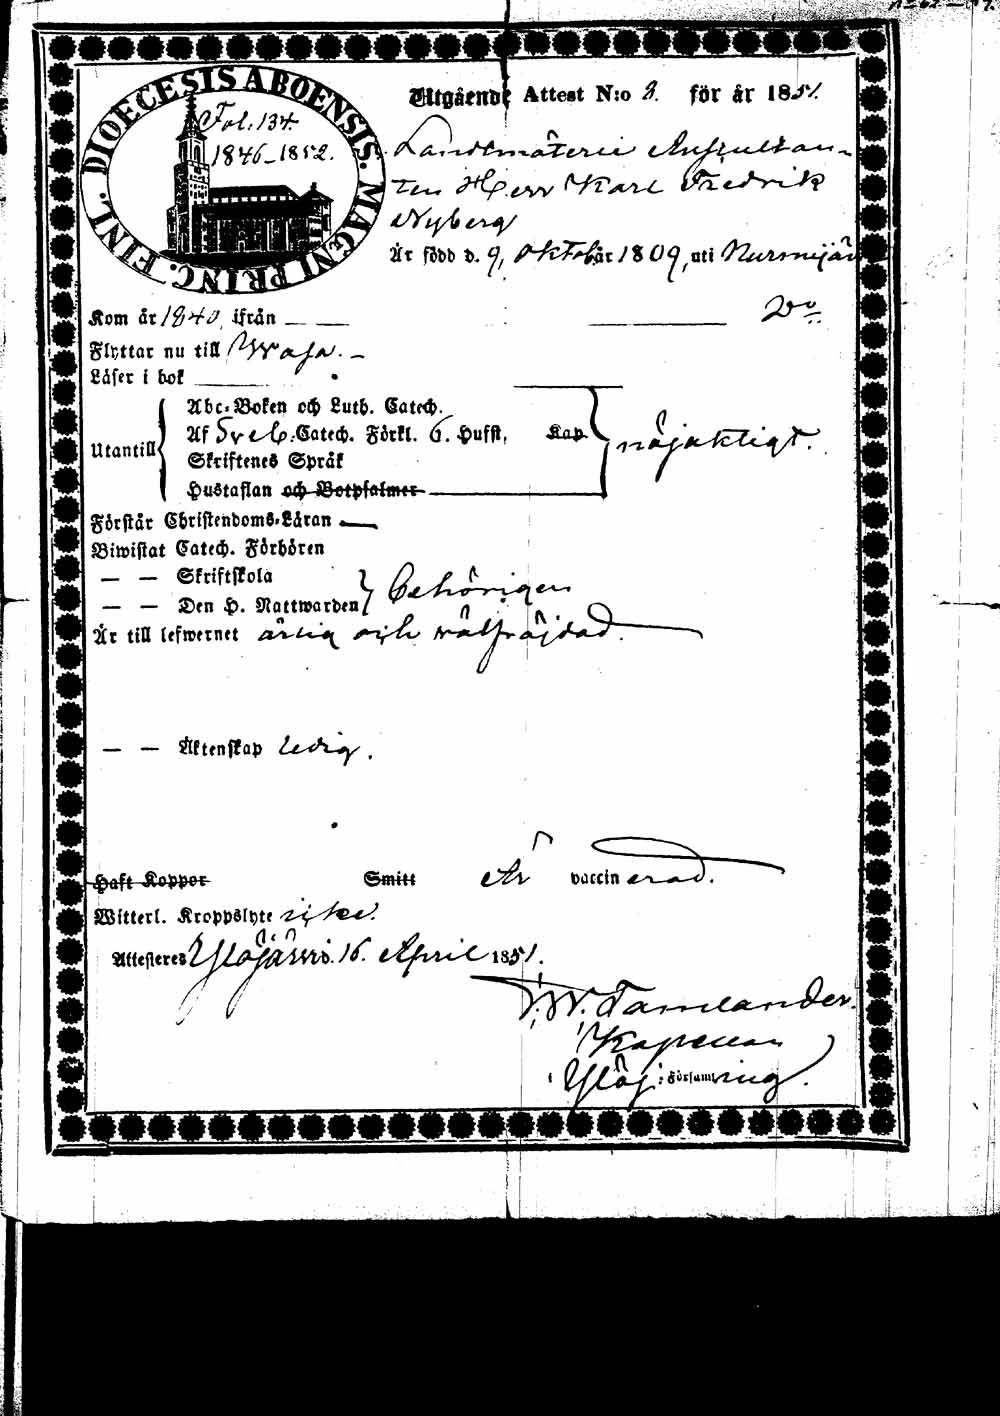 DIOECESIS ABOENSIS. MAGNI PRINC. FINL.
Fol. 134.
1846-1852.
Utgående Attest N:o 8. för år 1851.
Landtmäterie Auscultan-
ten Herr Karl Fredrik
Nyberg
Är född d. 9, Oktob. år 1809, uti Nurmijär
Kom år 1840, ifrån
Flyttar nu till Wasa.
Läser i bok
Utantill
Abc-Boken och Luth. Catech.
Af Sveb: Catech. Förkl. 6. Hufst, Kap
nöjaktigt.
Skriftenes Språk
Hustaflan och Botpsalmer
Förstår Christendoms-Läran
Biwistat Catech. Förhören
— — Skriftskola
— — Den H. Nattwarden
behörigen
Är till lefwernet ärlig och wälfräjdad.
— — Äktenskap ledig.
Haft Koppor Smitt Är vaccinerad.
Witterl. Kroppslyte icke.
Attesteres Ylöjärvi d. 16. April 1851.
W. Tamlander.
Kapellan
i Ylöj: Församling.